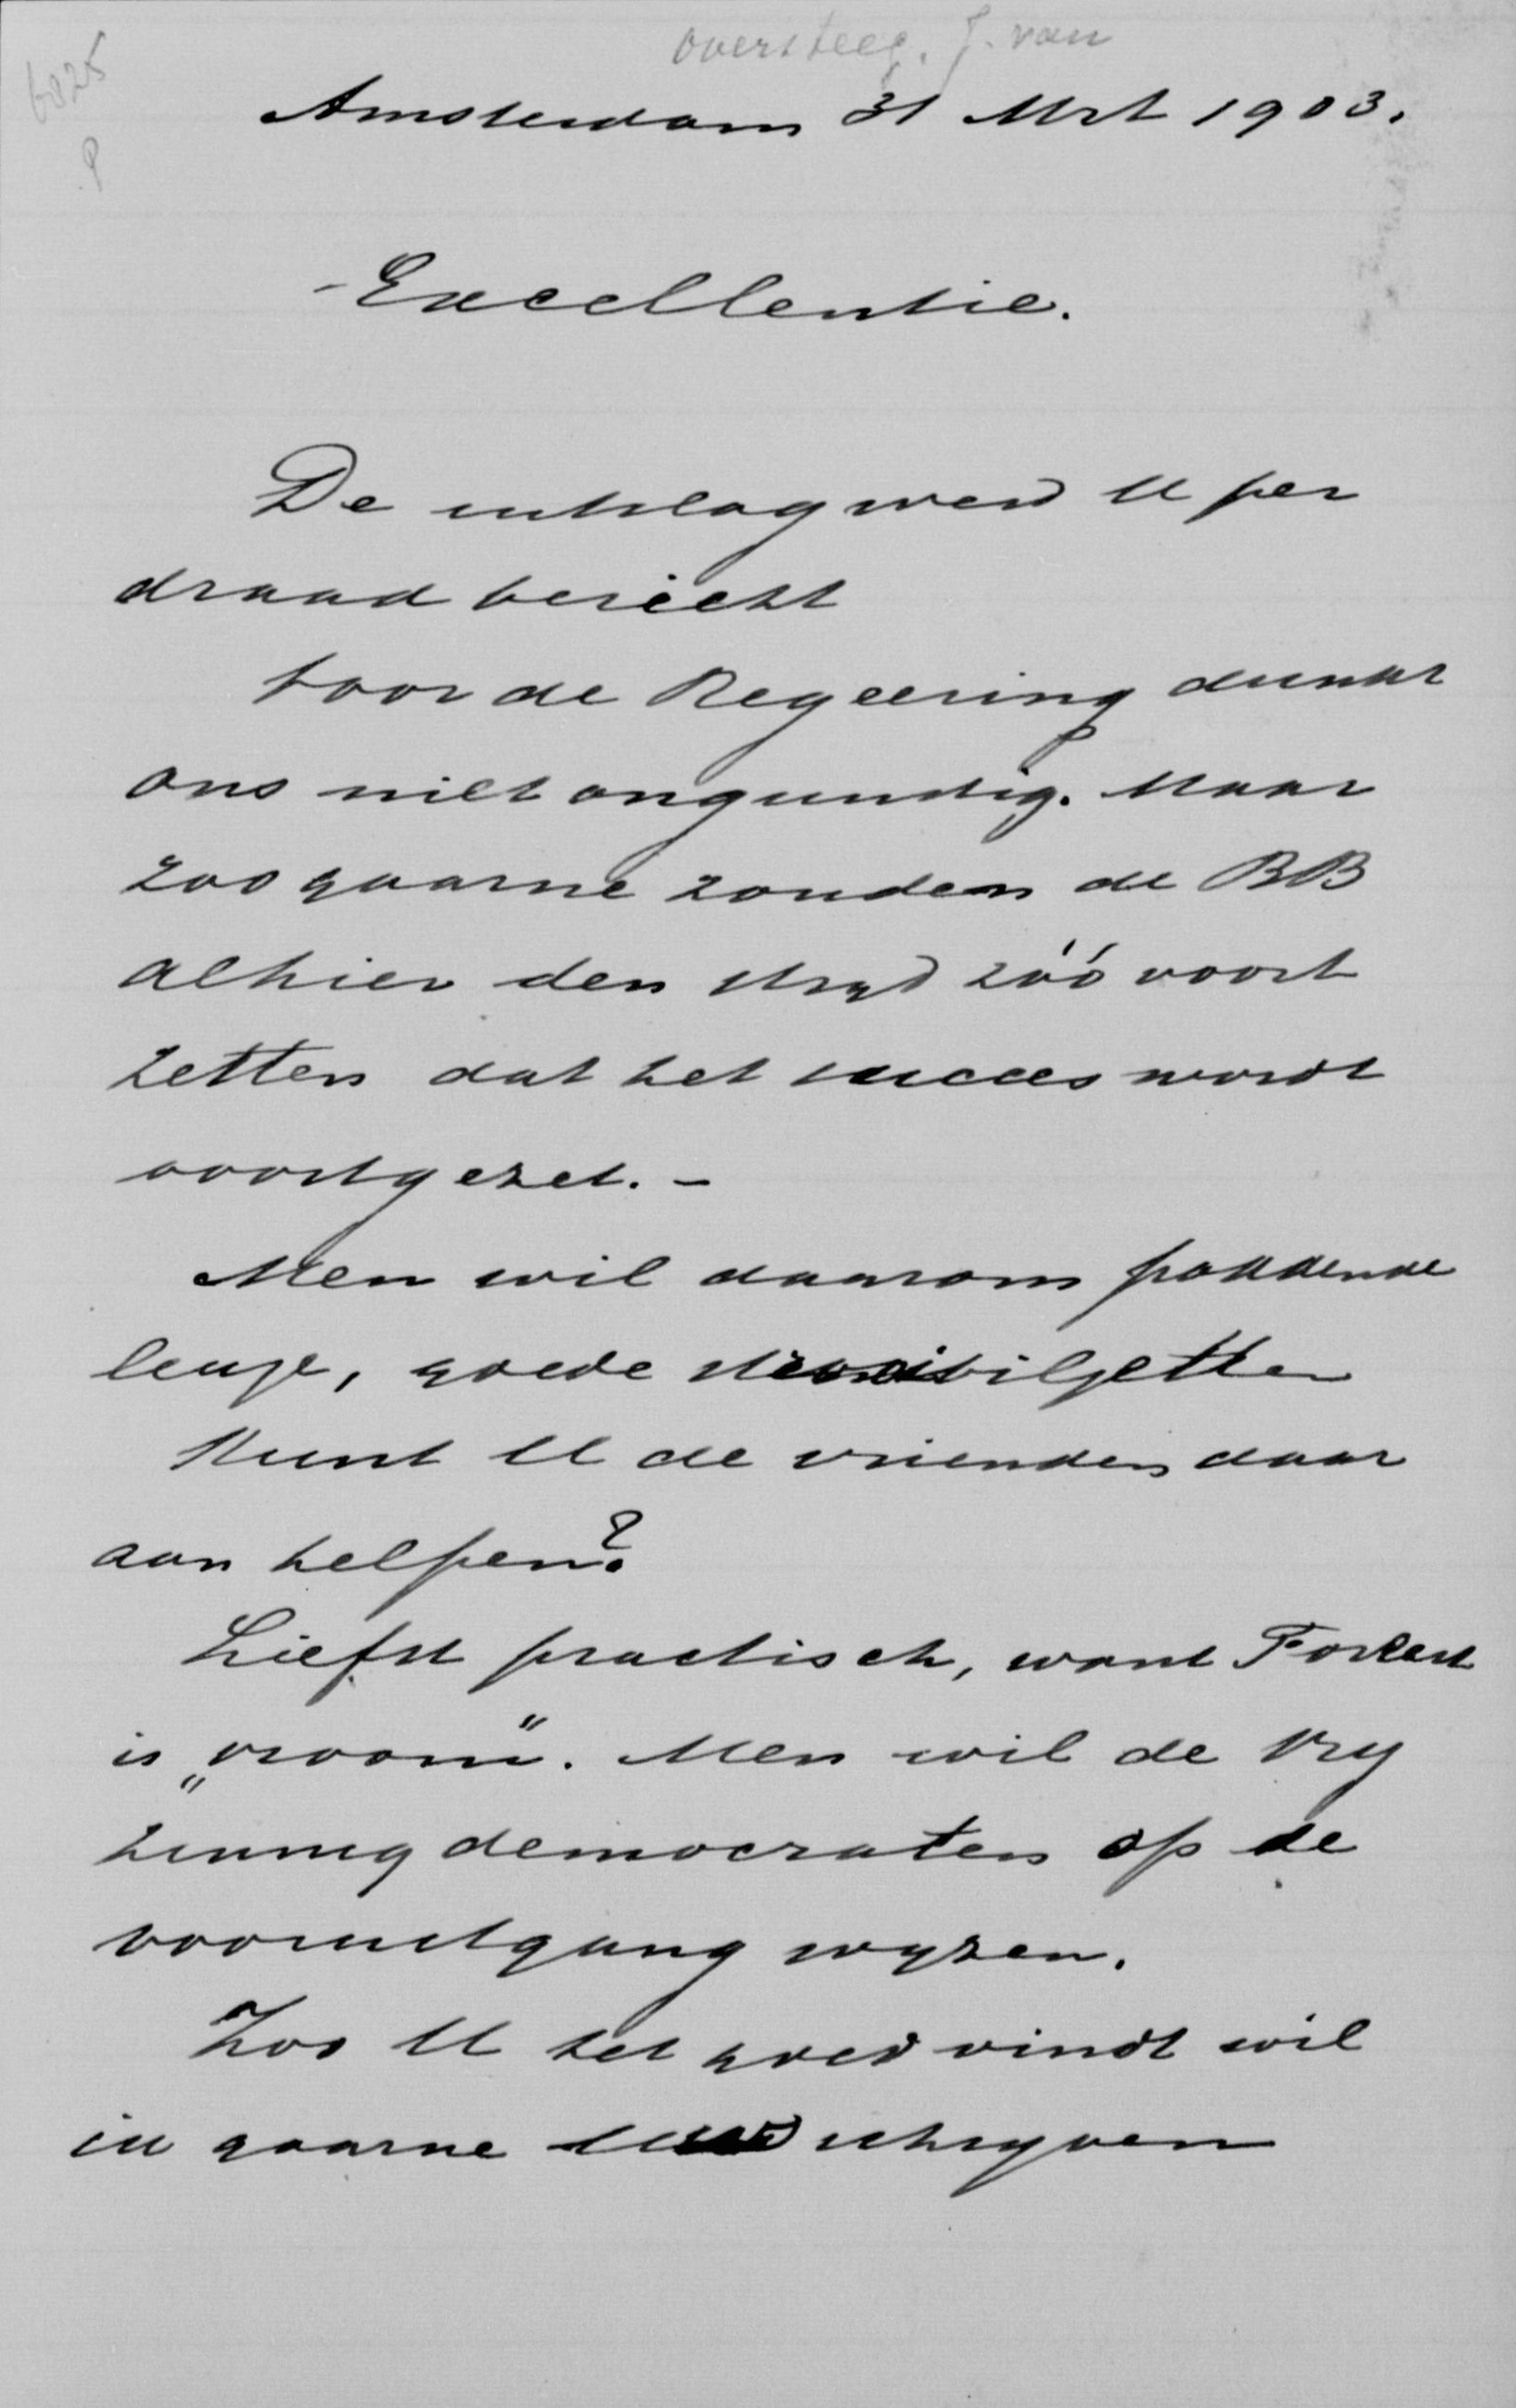 Oversteeg. J. van
6025
P
Amsterdam 31 Mrt 1903.
Excellentie.
De uitslag werd U per
draad bericht
Voor de Regeering dunkt
ons niet ongunstig. Maar
zoo gaarne zouden de BB
alhier den strijd zóó voort
zetten dat het succes wordt
voortgezet. -
Men wil daarom pakkende
leuze, goede strooibiljetten
Kunt U de vrienden daar
aan helpen?
Liefst practisch, want Foreest
is „vroom". Men wil de Vrij
zinnig democraten op de
vooruitgang wijzen.
Zoo U het goed vindt wil
ik gaarne schrijven